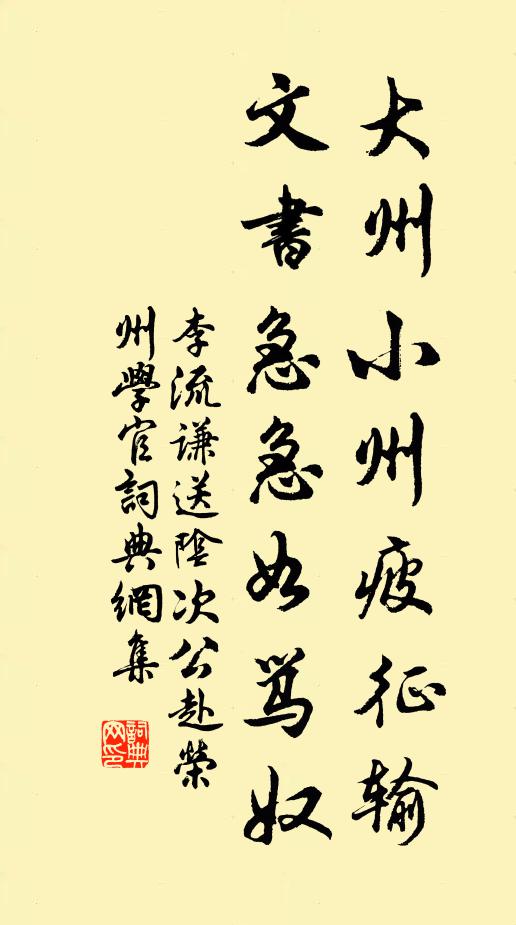 大州小州疲征输
文書急急如骂奴
李流谦送陰次公赴榮
州學官詞典網集
詞典
网印